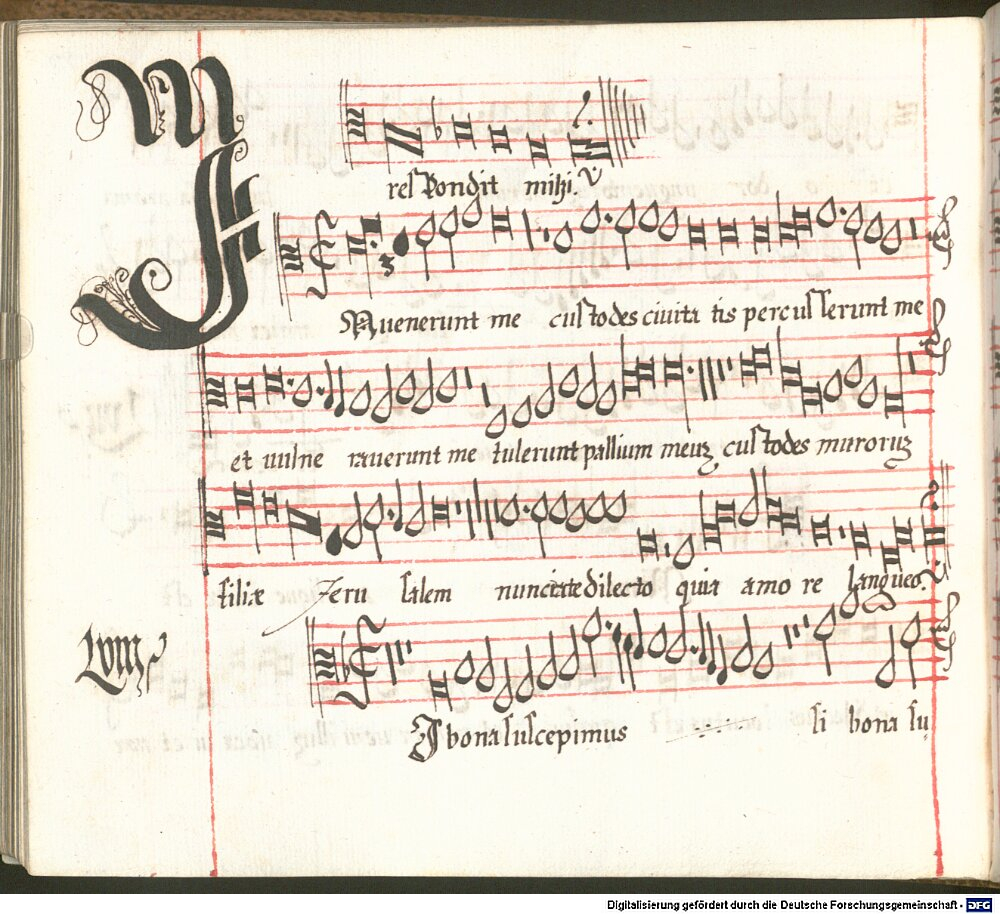 respondit mihi.
INuenerunt me custodes ciuita tis percusserunt me
et uulne rauerunt me tulerunt pallium meuʒ custodes muroruʒ
filiæ Jeru salem nunciate dilecto quia amo re langueo.
LVIII
SI bona suscepimus si bona su⸗
Digitalisierung gefördert durch die Deutsche Forschungsgemeinschaft - DFG